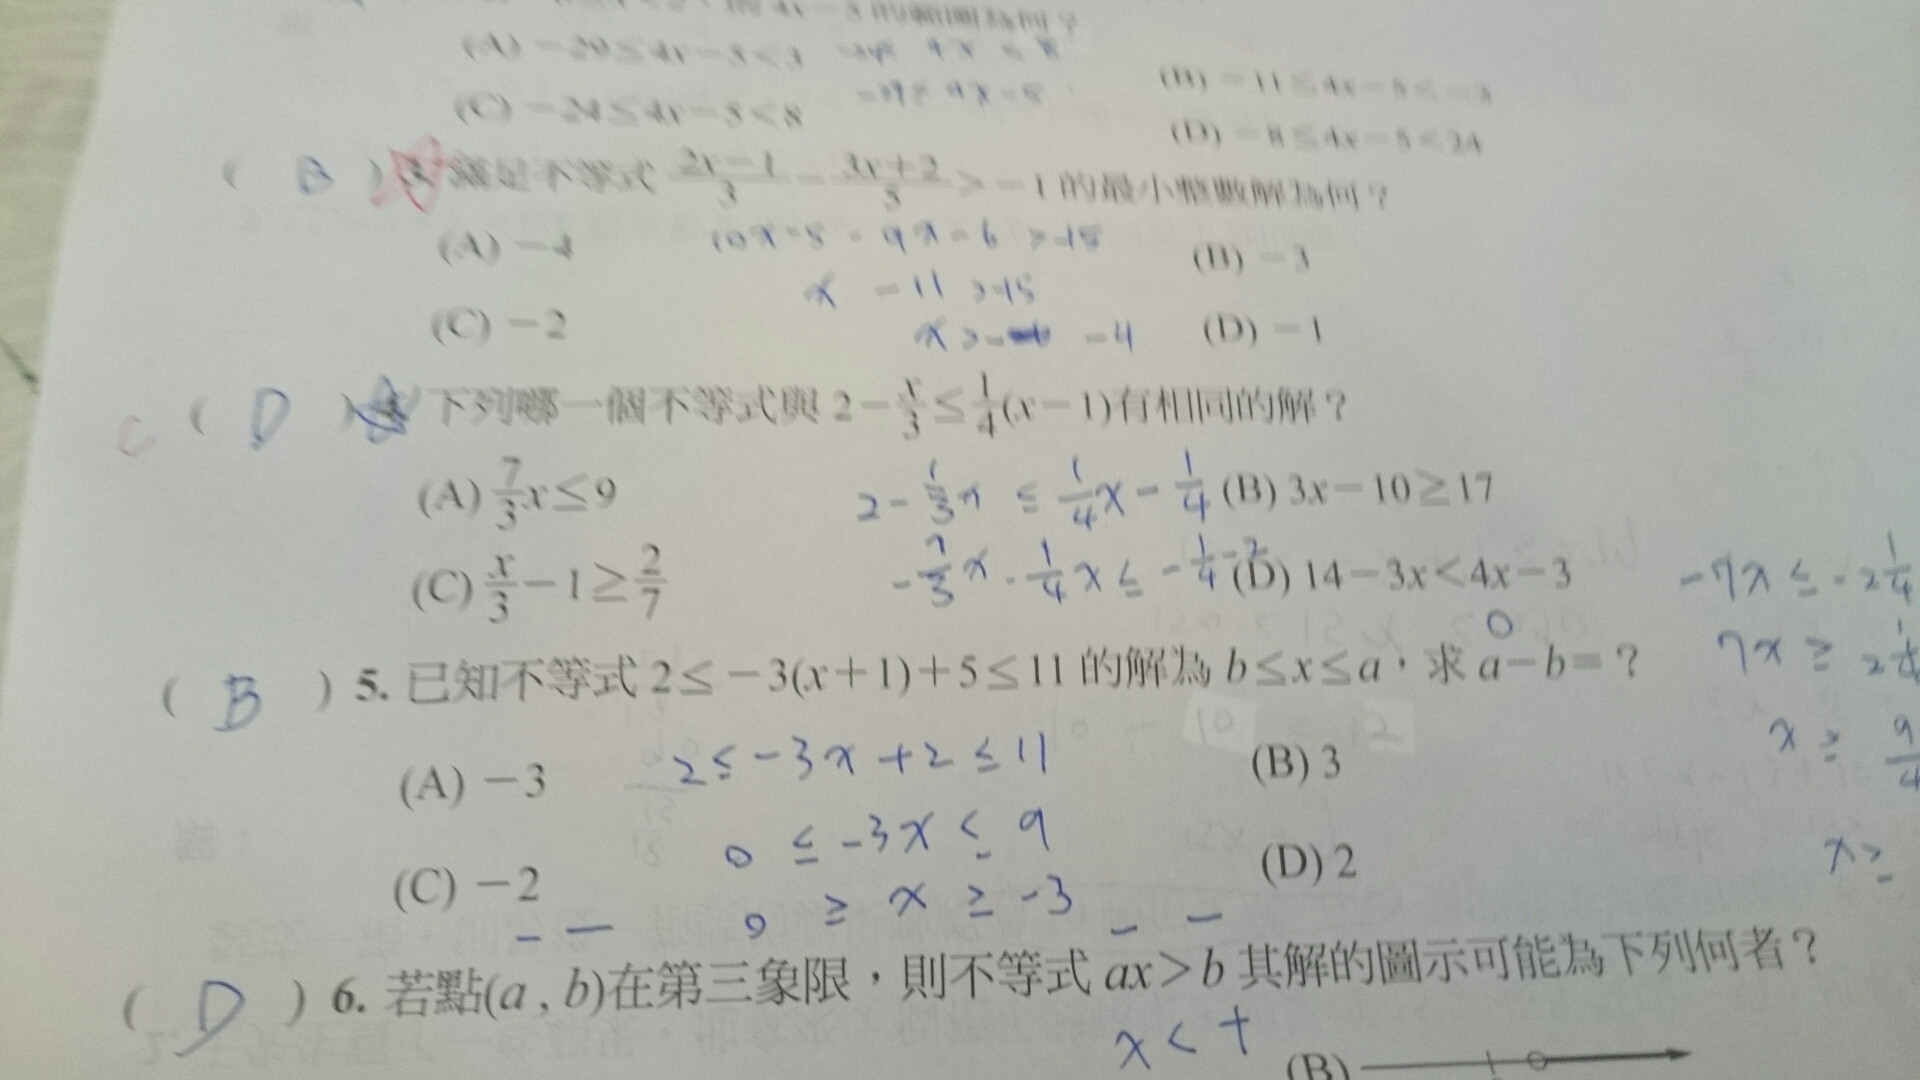 (A) −29≤4x−5<3
(B) −11≤4x−5<−3
(C) −24≤4x−5<8
(D) −8≤4x−5<24
( B ) 3. 滿足不等式 (2x−1)/3 − (3x+2)/5 > −1 的最小整數解為何？
10x-5 - 9x-6 >-15
(A) −4
(B) −3
x -11 >-15
(C) −2
x > -4
(D) −1
C ( D ) 4. 下列哪一個不等式與 2−x/3≤1/4(x−1)有相同的解？
(A) 7/3x≤9
2-1/3x ≤ 1/4x-1/4
(B) 3x−10≥17
(C) x/3−1≥2/7
-1/3x-1/4x≤-1/4-2
(D) 14−3x<4x−3
-7x≤-2 1/4
7x≥2 1/4
x≥9/4
x≥
( B ) 5. 已知不等式 2≤−3(x+1)+5≤11 的解為 b≤x≤a，求 a−b=？
0
(A) −3
2≤-3x+2≤11
(B) 3
0≤-3x≤9
(C) −2
0≥x≥-3
(D) 2
( D ) 6. 若點(a , b)在第三象限，則不等式 ax>b 其解的圖示可能為下列何者？
x<+
(B)